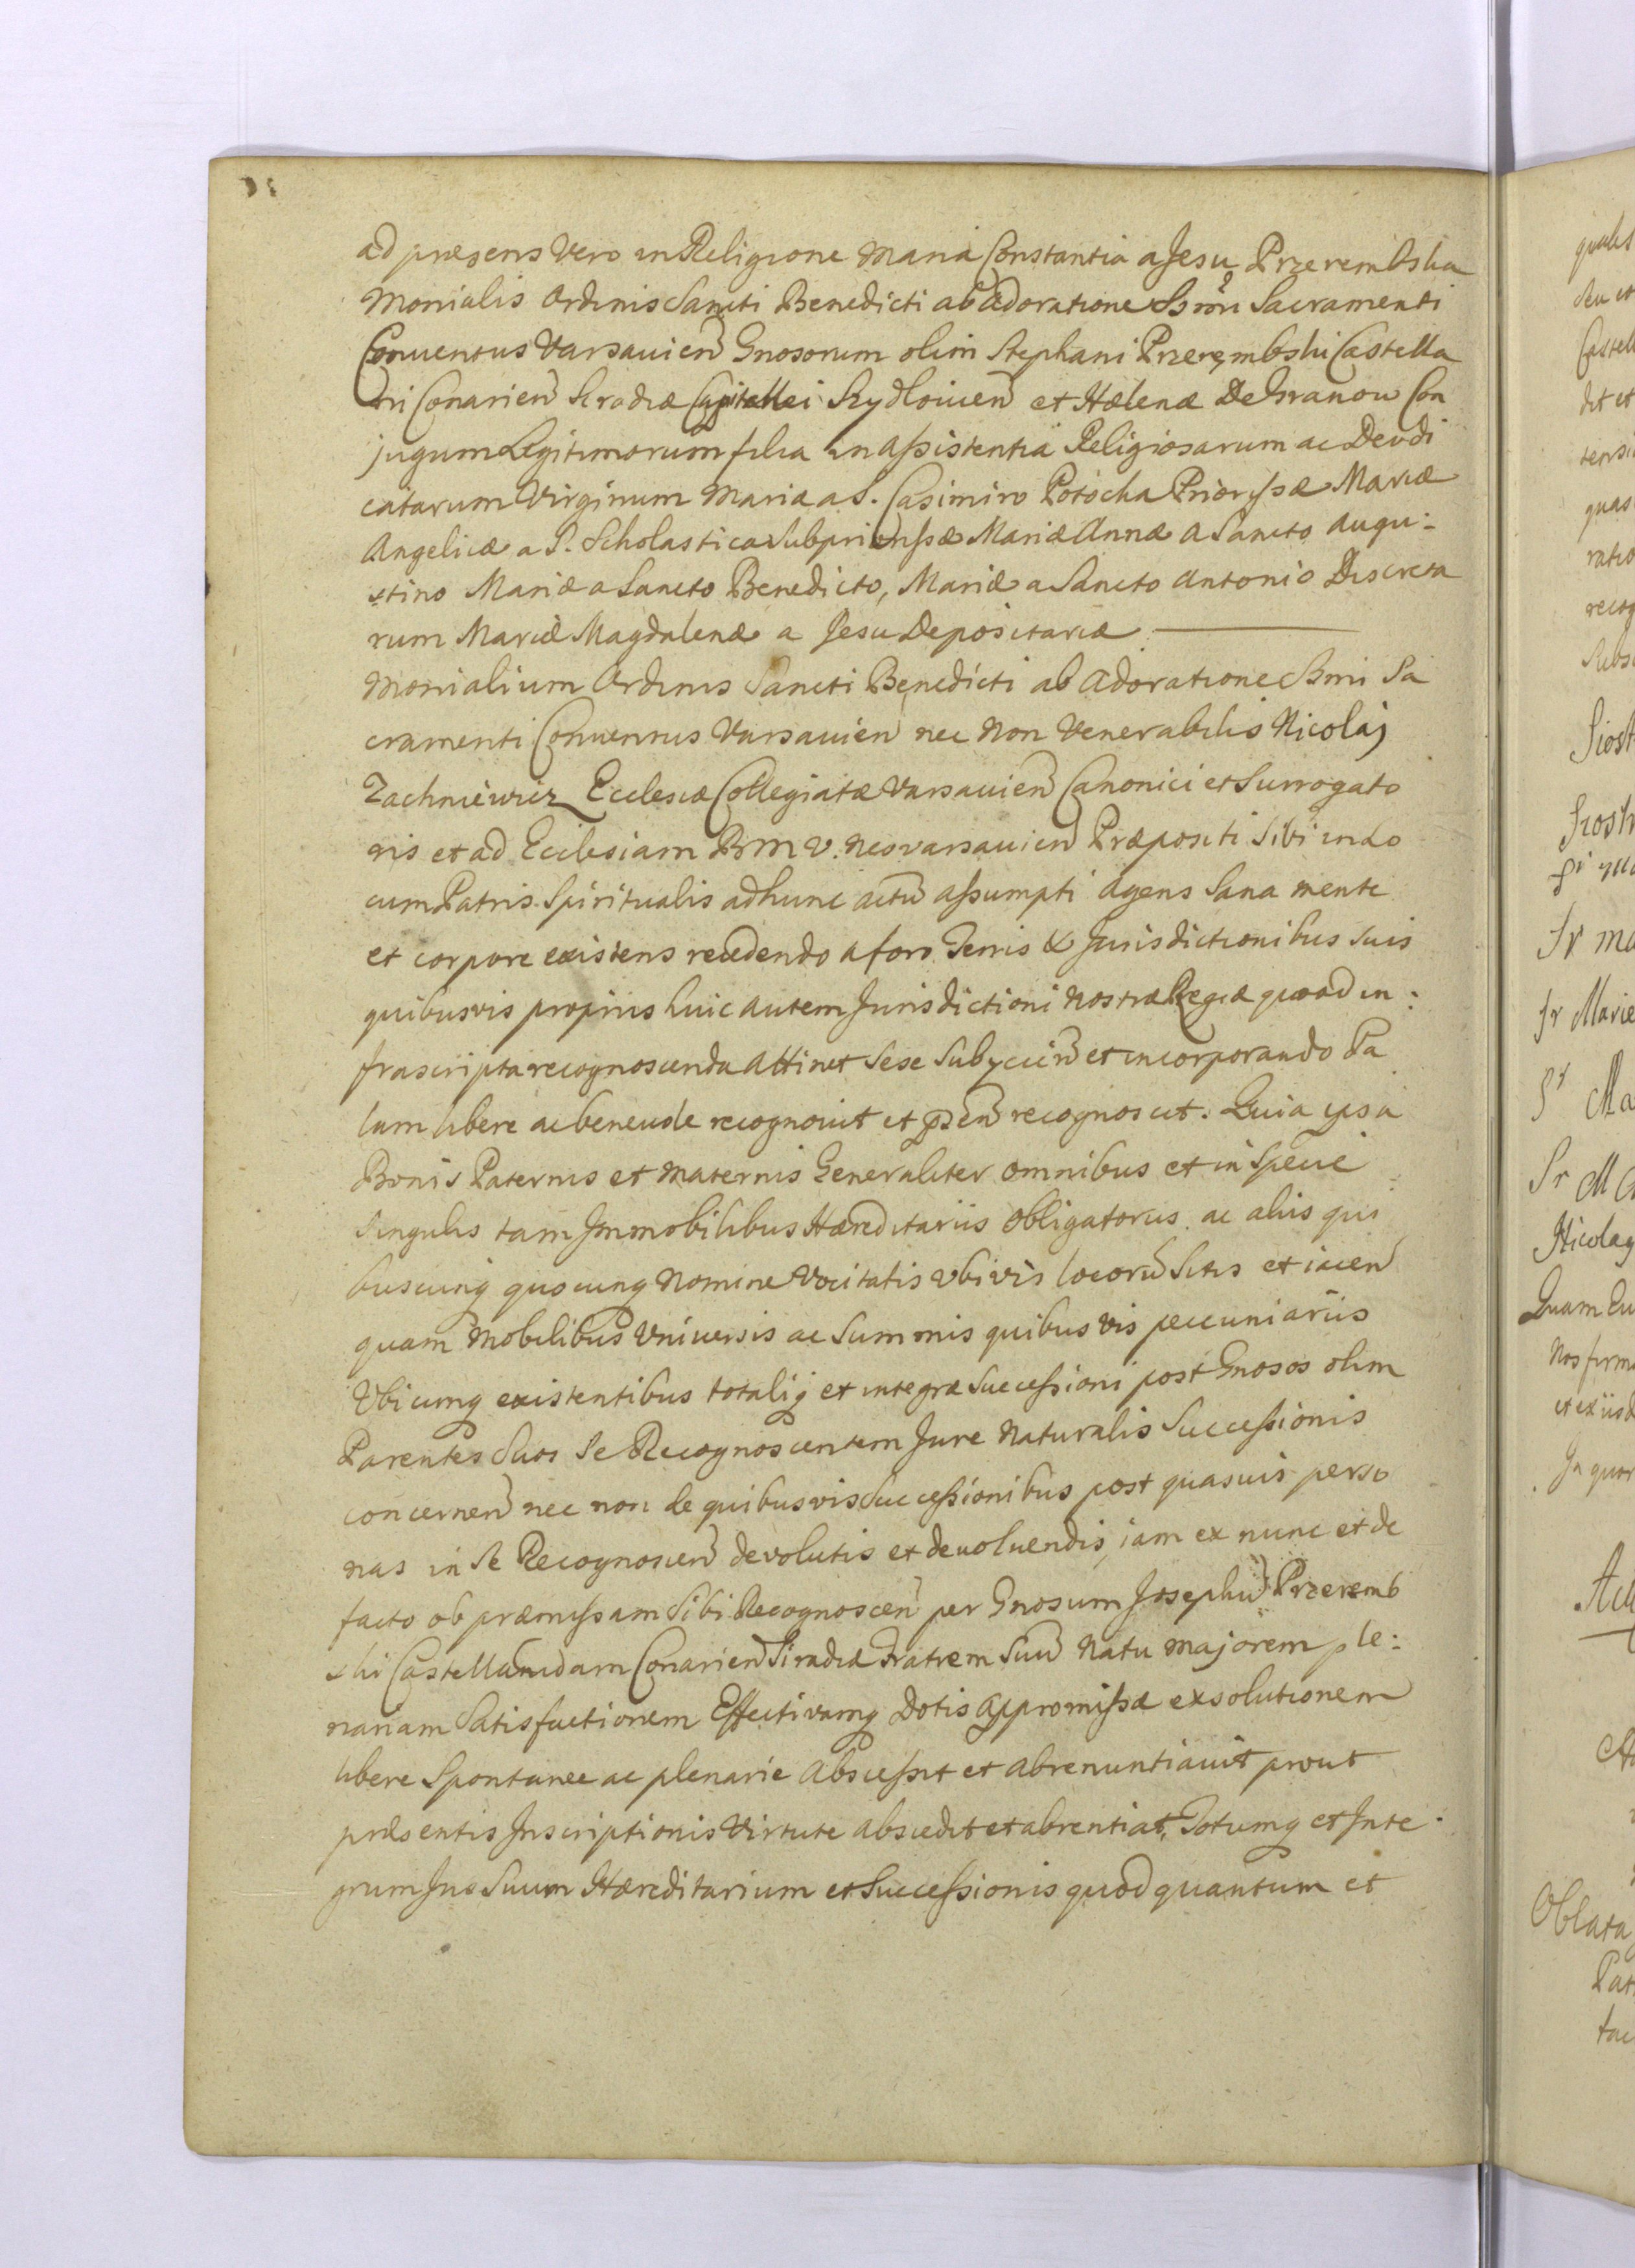 ad præsens vero in Religione Maria Constantia a Jesu Przerembska
Monialis Ordinis Sancti Benedicti ab Adoratione Ssmi Sacramenti
Conuentus Varsauien Gnosorum olim Stephani Przerembski Castella
ni Conarien Siradiæ Capitanei Szydlouien et Helenæ De Granow Con
jugum Legitimorum filia in assistentia Religiosarum ac Deo di
catarum Virginum Mariæ a S. Casimiro Potocka Priorissæ Mariæ
Angelicæ a S. Scholastica Subpriorissæ Mariæ Annæ a Sancto Augu:
stino Mariæ a Sancto Benedicto, Mariæ a Sancto Antonio Discreta
rum Mariæ Magdalenæ a Jesu Depositariæ
Monialium Ordinis Sancti Benedicti ab Adoratione Ssmi Sa
cramenti Conuentus Varsauien nec non Venerabilis Nicolaj
Zachniewicz Ecclesiæ Collegiatæ Varsauien Canonici et Surrogato
ris et ad Ecclesiam B M V. Neovarsauien Præpositi sibi in lo
cum Patris Spiritualis ad hunc actu assumpti agens Sana mente
et corpore existens recedendo a foro Terris & Jurisdictionibus suis
quibusvis proprijs huic autem Jurisdictioni Nostræ Regiæ quoad in:
frascripta recognoscenda attinet sese subyciend et incorporando Pa
lam libere ac beneuole recognouit et p̄sen recognoscit. Quia ipsa
Bonis Paternis et Maternis Generaliter omnibus et in Specie
singulis tam Immobilibus Hæreditariis Obligatorijs ac aliis qui
buscunq quocunq Nomine Vocitatis Vbivis locorū Sitis et iacen
quam Mobilibus Vniuersis ac Summis quibusvis pecuniariis
Vbicunq existentibus totaliq et integræ Successioni post Gnosos olim
Parentes suos Se Recognoscentem Jure Naturalis Successionis
concernen nec non de quibusvis Successionibus post quasuis perso
nas in Se Recognoscen devolutis et deuoluendis, iam ex nunc et de
facto ob præmissam Sibi Recognoscen per Gnosum Josephū Przeremb
ski Castellanidam Conarien Siradiæ Fratrem Suū Natu majorem ple:
nariam Satisfactionem Effectivamq Dotis appromissæ exsolutionem
libere Spontanee ac plenarie Abscessit et abrenuntiauit prout
præsentis Inscriptionis Virtute abscedit et abrentiat, Totumq et Inte
grum Jus Suum Hæreditarium et Successionis quod quantum et